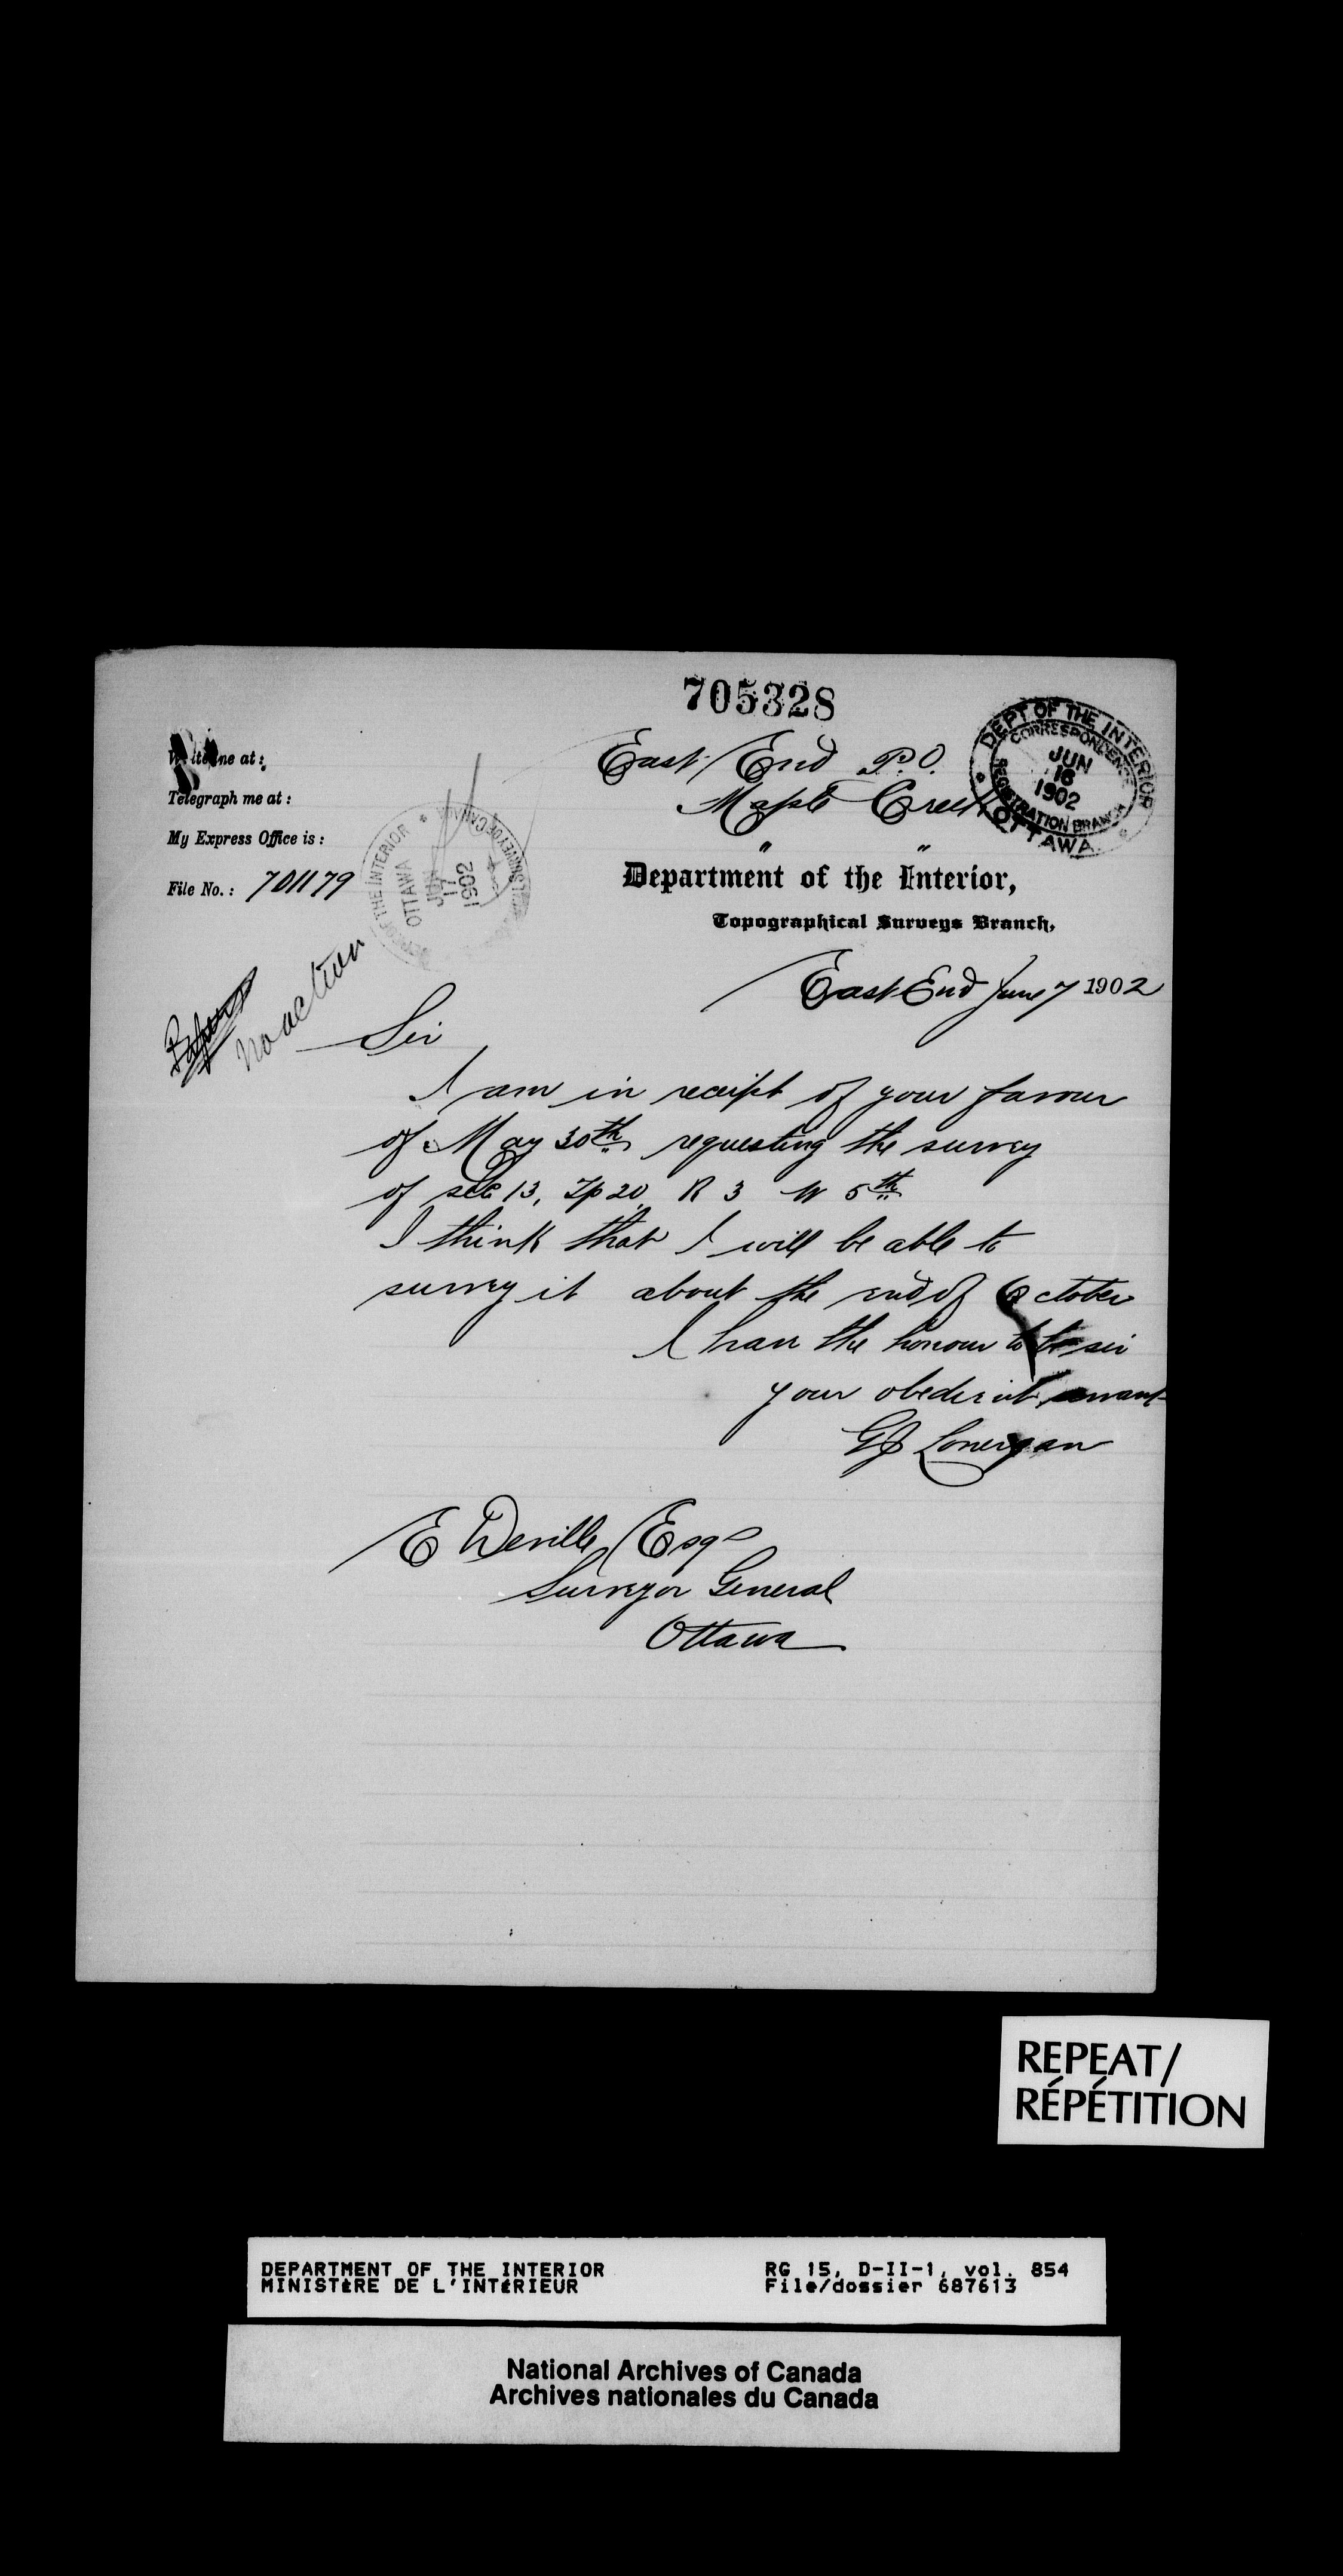 705328
Write me at: East End P.O.
Telegraph me at: Maple Creek
My Express Office is: " "
File No.: 701179
DEPT OF THE INTERIOR
CORRESPONDENCE
JUN
16
1902
REGISTRATION BRANCH
OTTAWA
THE INTERIOR
OTTAWA
JUN
17
1902
SURVEY OF CANADA
Department of the Interior,
Topographical Surveys Branch,
East End June 7 1902
Papers
No action
Sir
I am in receipt of your favour
of May 30th requesting the survey
of sec 13, Tp 20 R 3 W 5th
I think that I will be able to
survey it about the end of October
I have the honour to be sir
your obedient servant
GJ Lonergan
E Deville Esq
Surveyor General
Ottawa
REPEAT/
RÉPÉTITION
DEPARTMENT OF THE INTERIOR RG 15, D-II-1, vol. 854
MINISTÈRE DE L'INTÉRIEUR File/dossier 687613
National Archives of Canada
Archives nationales du Canada